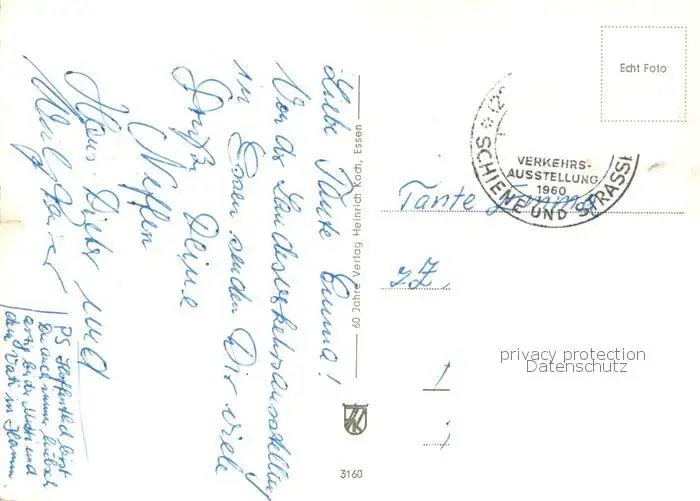 Liebe Tante Emma!
Von der Landesverkehrsausstellung
in Essen senden Dir viele
Grüße Deine
Neffen
Hans Dieter und
PS Hoffentlich bist
Du auch immer hübsch
artig bei der Mutti und
dem Vati in Hamm.
60 Jahre Verlag Heinrich Koch, Essen
3160
Echt Foto
VERKEHRS-
AUSSTELLUNG
1960
SCHIENE UND STRASSE
Tante Emma
z.Z.
privacy protection
Datenschutz